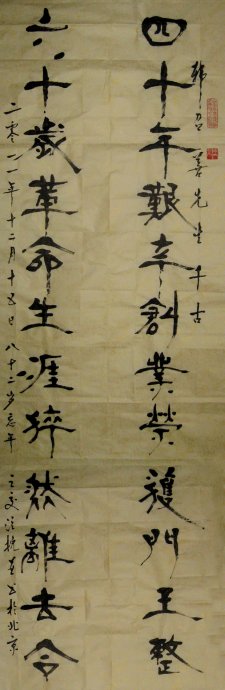 韩召善先生千古
四十年艰辛創業榮獲門王整
六十歲革命生涯猝然離去令
二零一一年十二月十五日 八十二岁忘年
之交汪 书於北京